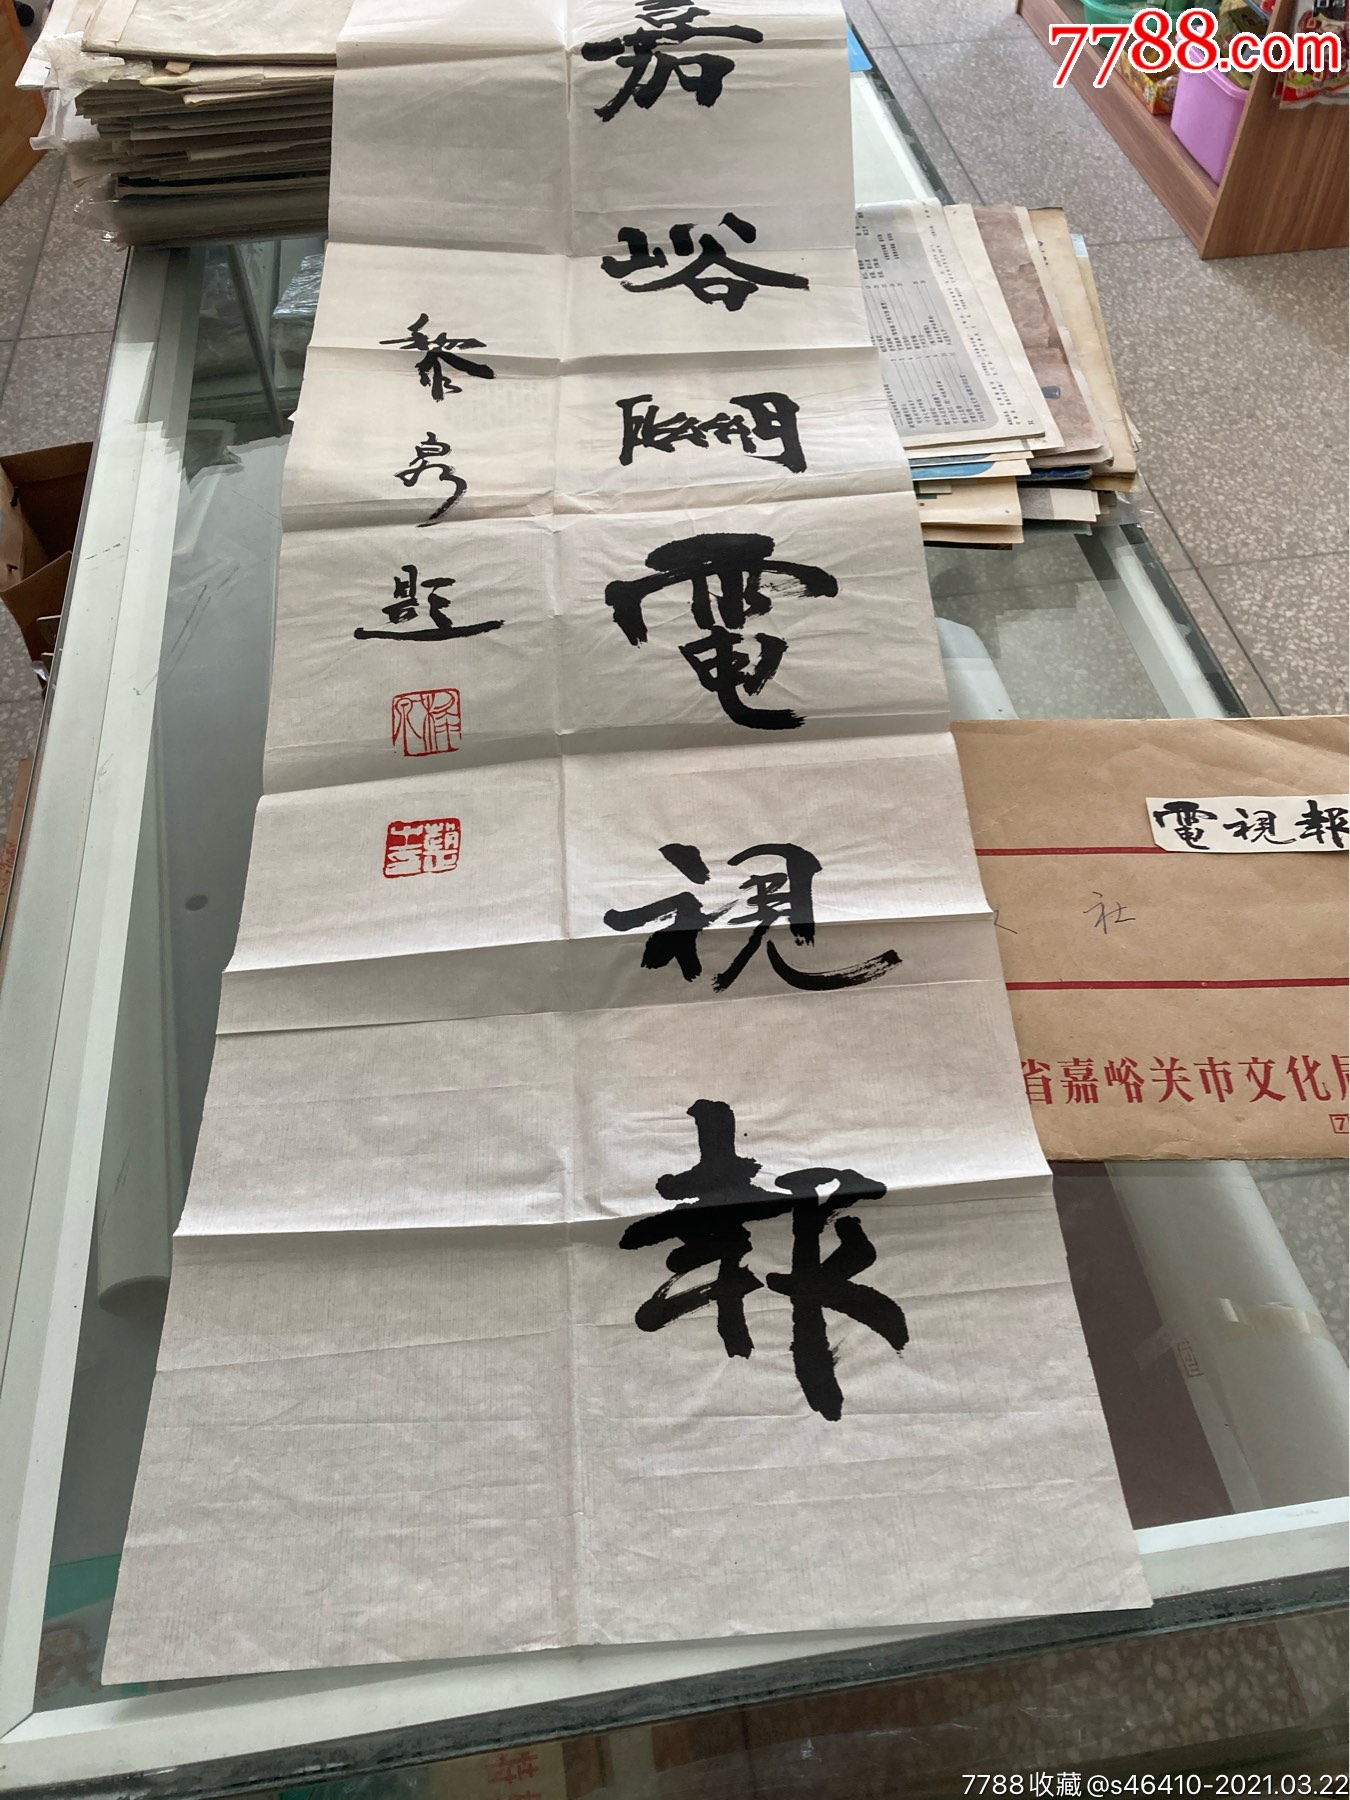 7788.com
嘉峪關電視報
黎泉題
電視報
社
省嘉峪关市文化局
7788收藏@s46410-2021.03.22